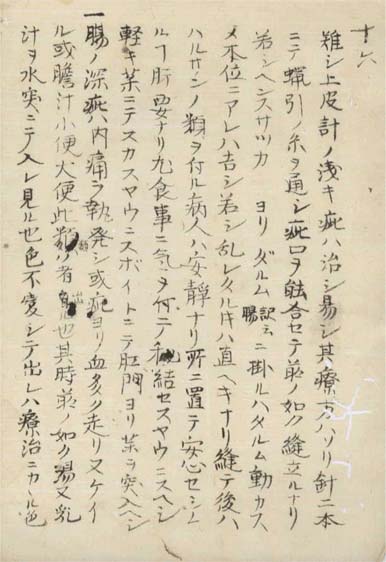 十六
難シ上皮計ノ浅キ疵ハ治シ易シ其療方ハソリ針二本
ニテ蝋引ノ糸ヲ通シ疵口ヲ能合セテ前ノ如ク縫立ルナリ
若シヘンスサツカ ヨリ ダルム 訳云腸 ニ掛ルハダルム動カス
メ本位ニアレハ吉シ若シ乱レタル片ハ直ヘキナリ縫テ後ハ
ハルサンノ類ヲ付ル病人ハ安静ナリ所ニ置テ安心セシム
ル丁肝要ナリ尤食事ニ気ヲ付テ秘結セスヤウニスヘシ
軽キ薬ニテスカスヤウニスボイトニテ肛門ヨリ薬ヲ突入ヘシ
一腸ノ深疵ハ内痛ヲ発シ或疵ヨリ血多ク走リ又ケイ
ル或膽汁小便大便此類ノ者出ル也其時前ノ如ク湯又乳
汁ヲ水突ニテ入レ見ル也色不変シテ出レハ療治ニカヽル色